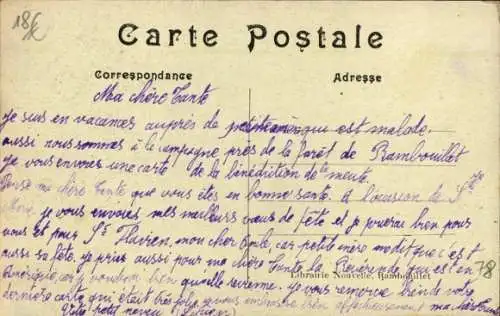 18f
Carte Postale
Correspondance
Adresse
Ma chère Tante
je suis en vacances auprès de petite mère qui est malade
aussi nous sommes à la campagne près de la forêt de Rambouillet
je vous envoie une carte de la bénédiction de la meute
Pense ma chère Tante que vous êtes en bonne santé. à l'occasion de Ste
Marie je vous envoies mes meilleurs vœux de fête et je prierai bien pour
vous et pour St Flavien, mon cher oncle, car petite mère m'a dit que c'est
aussi sa fête. je prie aussi pour ma chère Tante la Révérende qui est en
Amérique car je voudrais bien qu'elle revienne. je vous remercie bien de votre
dernière carte qui était très jolie je vous embrasse bien affectueusement ma chère Tante
Votre petit neveu
Librairie Nouvelle, Rambouillet
78